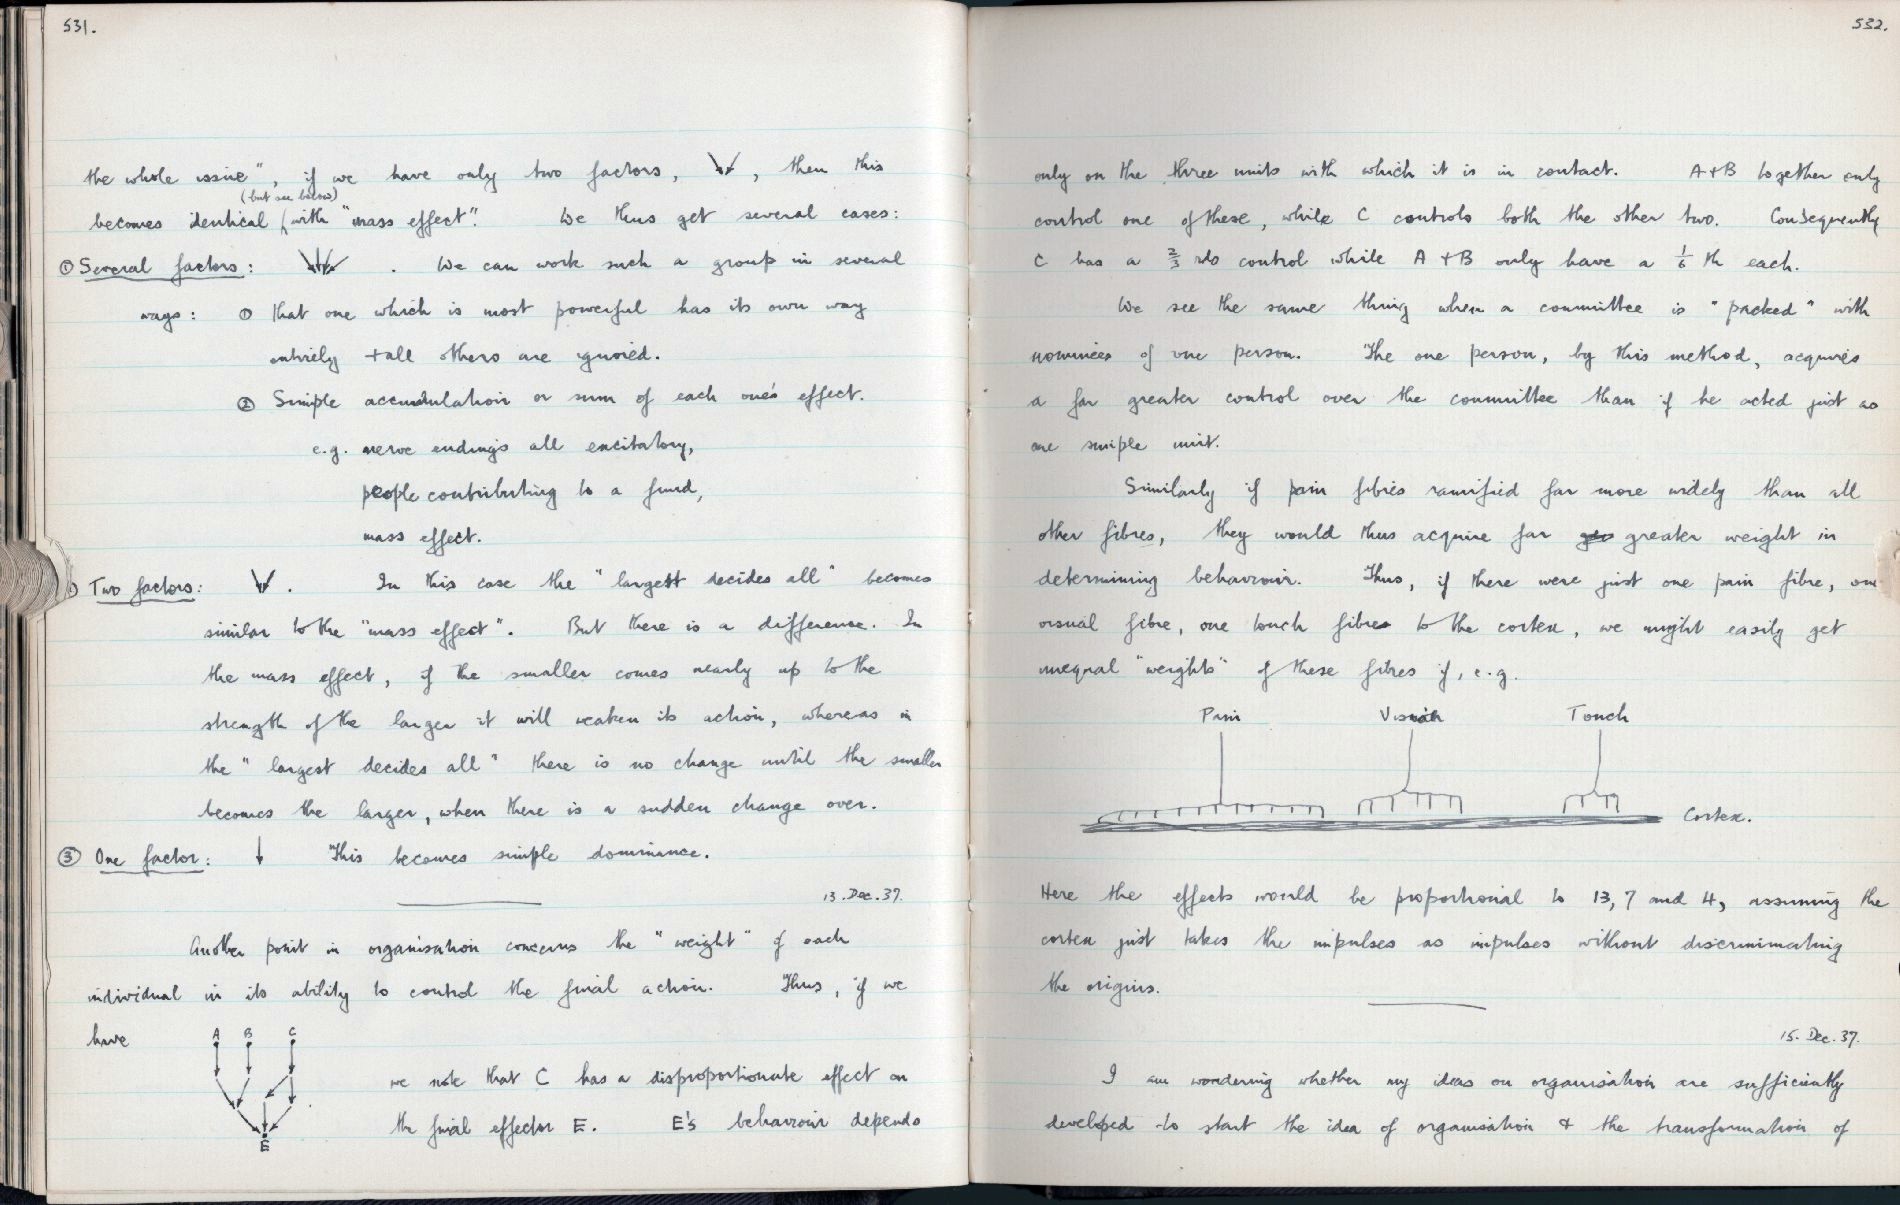 531.
the whole issue", if we have only two factors, , then this
(but see below)
becomes identical (with "mass effect". We thus get several cases:
① Several factors: . We can work such a group in several
ways: ① that one which is most powerful has its own way
entirely + all others are ignored.
② Simple accumulation or sum of each one's effect.
e.g. nerve endings all excitatory,
people contributing to a fund,
mass effect.
Two factors: . In this case the "largest decides all" becomes
similar to the "mass effect". But there is a difference. In
the mass effect, if the smaller comes nearly up to the
strength of the larger it will weaken its action, whereas in
the "largest decides all" there is no change until the smaller
becomes the larger, when there is a sudden change over.
③ One factor: ↓ This becomes simple dominance.
13. Dec. 37.
Another point in organisation concerns the "weight" of each
individual in its ability to control the final action. Thus, if we
have
A B C
we note that C has a disproportionate effect on
the final effector E. E's behaviour depends
E
532.
only on the three units with which it is in contact. A+B together only
control one of these, while C controls both the other two. Consequently
C has a 2/3 rds control while A + B only have a 1/6 th each.
We see the same thing when a committee is "packed" with
nominees of one person. The one person, by this method, acquires
a far greater control over the committee than if he acted just as
one simple unit.
Similarly if pain fibres ramified far more widely than all
other fibres, they would thus acquire far greater weight in
determining behaviour. Thus, if there were just one pain fibre, one
visual fibre, one touch fibre to the cortex, we might easily get
unequal "weights" of these fibres if, e.g.
Pain Vision Touch
Cortex.
Here the effects would be proportional to 13, 7 and 4, assuming the
cortex just takes the impulses as impulses without discriminating
the origins.
15. Dec. 37.
I am wondering whether my ideas on organisation are sufficiently
developed to start the idea of organisation & the transformation of